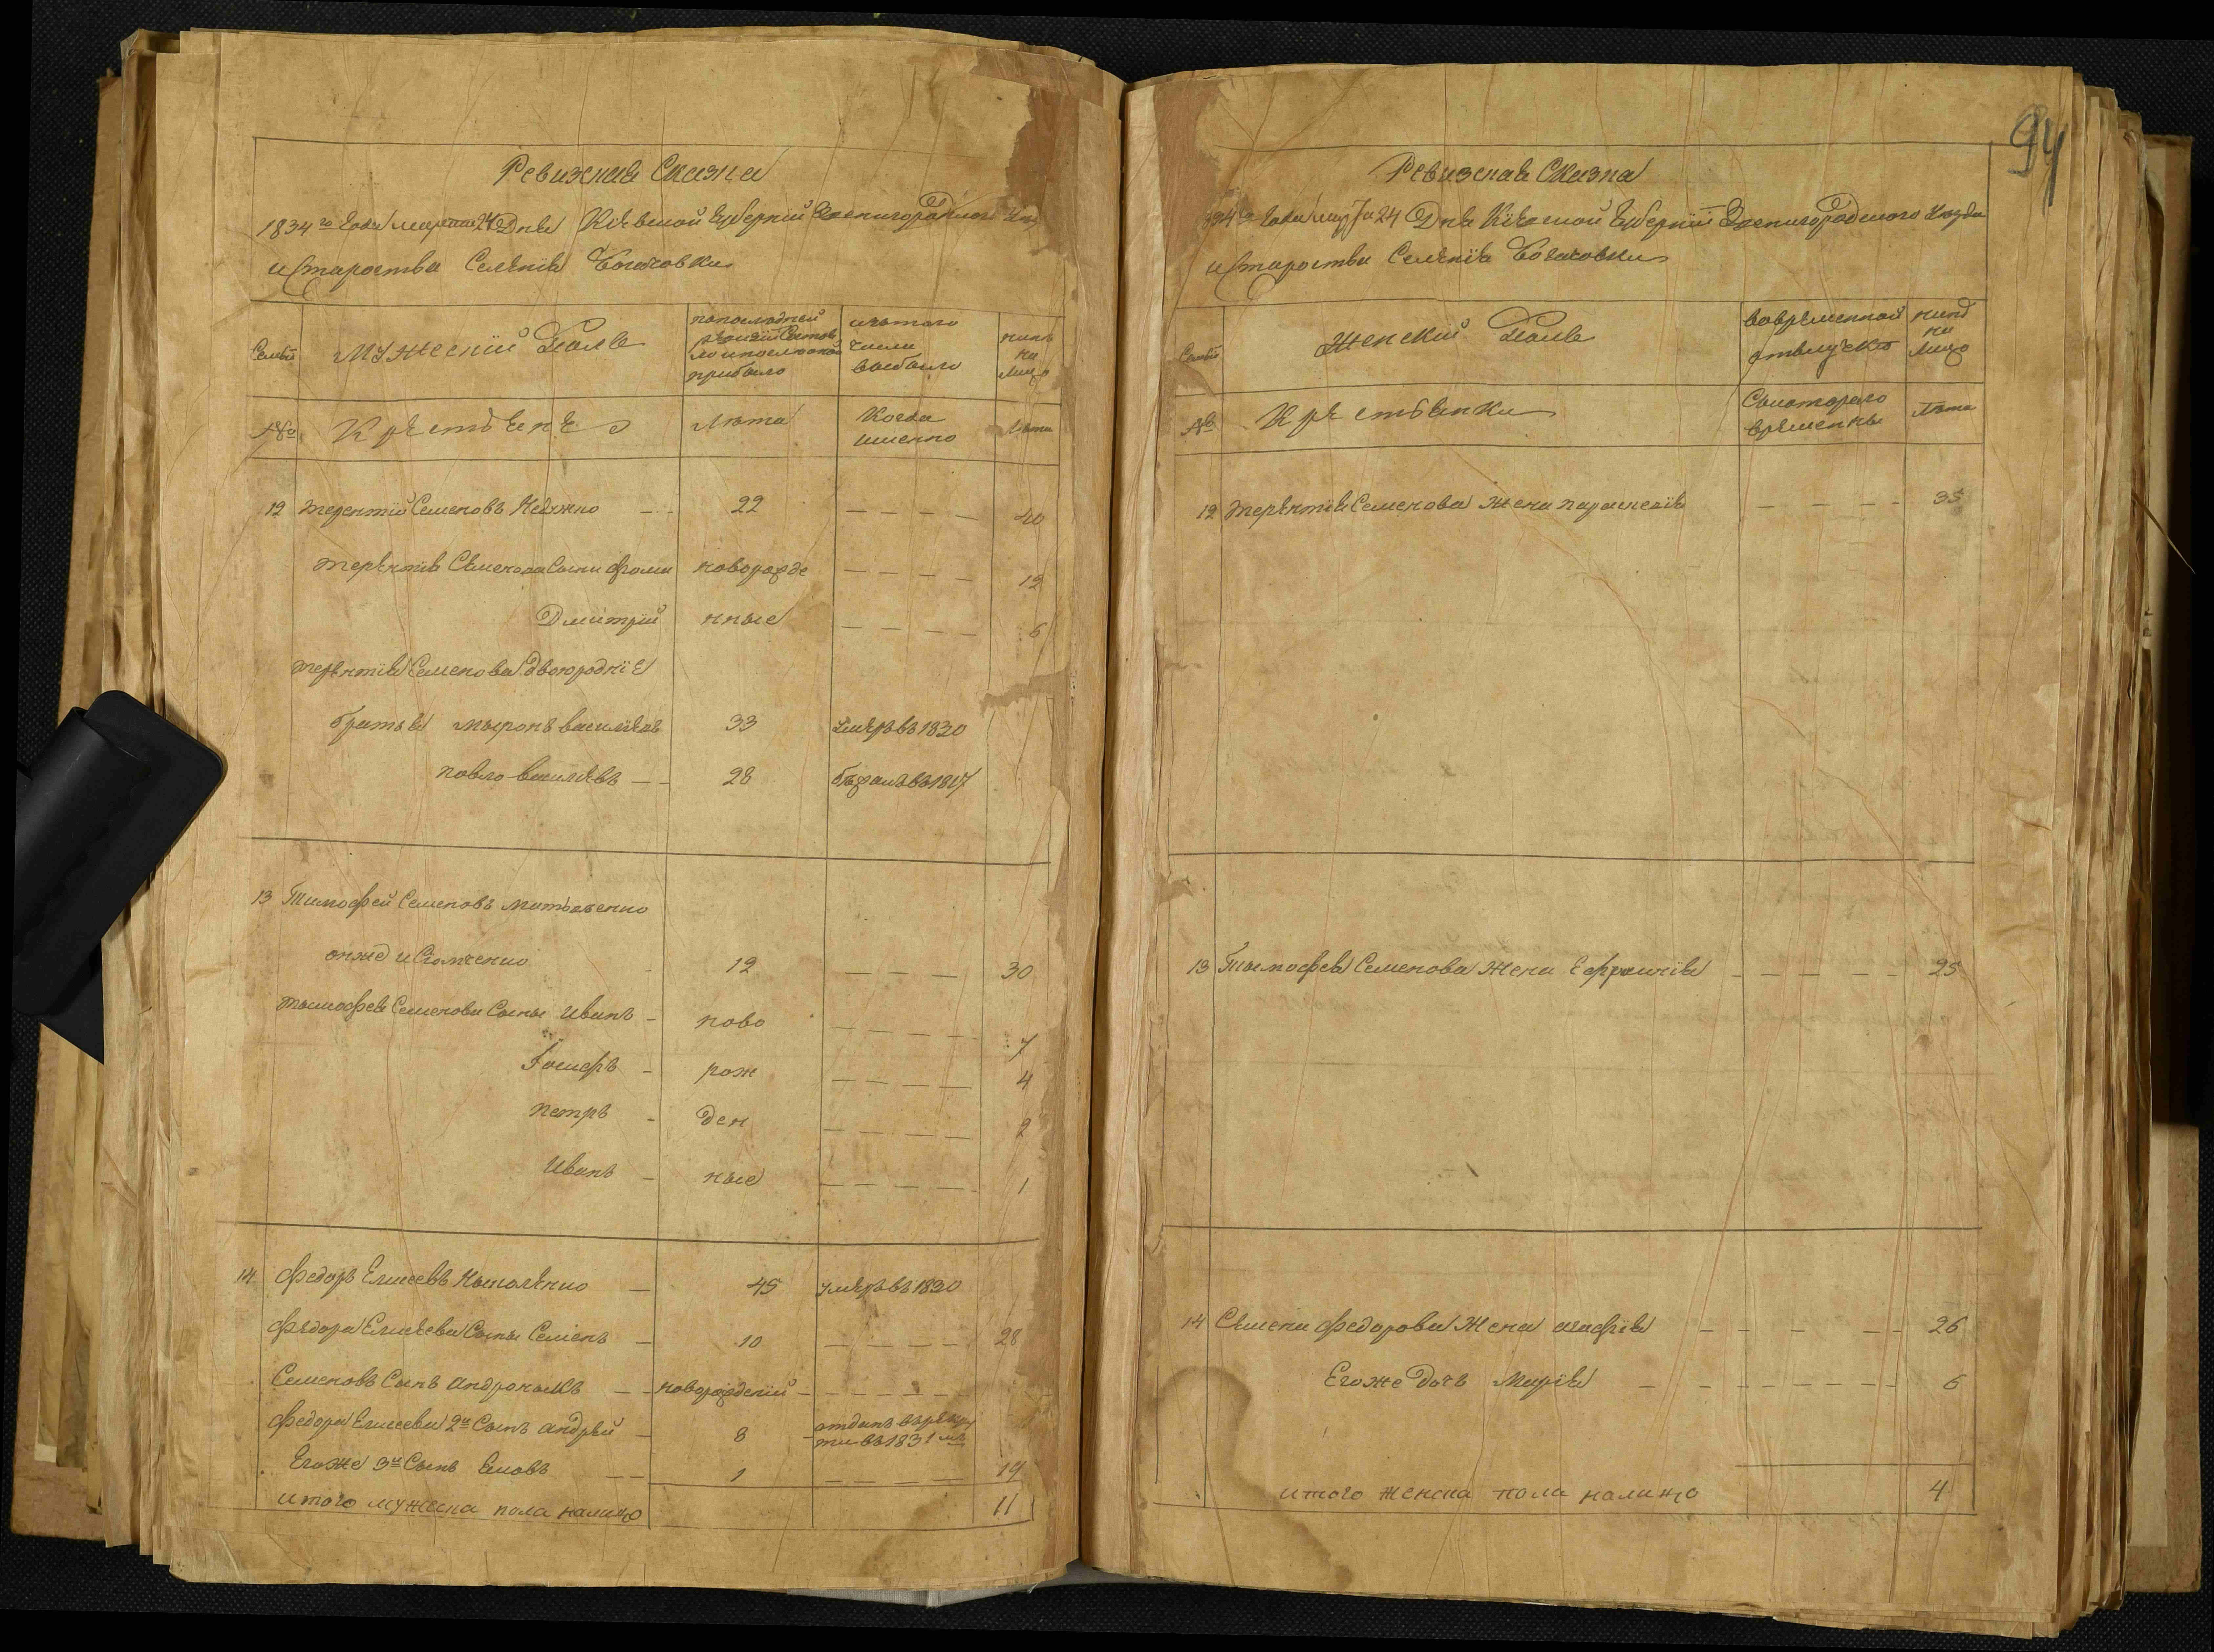 Ревизская Сказка
1834го года марта 24 Дня Кіевской Губерніи Звенигородского
и Староства Селенія Богачовки
Семьи
Мужескій Полъ
попоследней ревизіи Состояло ипослетой прибыло
изътого числа выбыло
нынѣ на лицо
№
Крестьяне
Лѣта
Когда именно
Лѣта
12 терентій Семеновъ — — 22 — — — — 40
терентія Семенова Сыни фома новорожде — — — — 12
Дмитрій нные — — — — 6
терентія Семенова двоюродніе
братья мыронъ василіевъ 33 умеръ въ 1830
павло василіевъ — — 28 бежалъ въ 1817
13 Тимофей Семеновъ
онже и 12 — — — 30
тымофея Семенова Сыны Иванъ — ново — — — — 7
— рож — — — — 4
петръ — ден — — — — 2
Иванъ — ные — — — — 1
14 Федоръ Елисеевъ — 45 умеръ въ 1830
Федора Елисеева Сыны Семенъ — 10 — — — — 28
Семеновъ Сынъ андроныкъ — — новорожденій — — — — —
Федора Елисеева 2й Сынъ андрей — 8 — отданъ върекру
ты въ 1831 мъ
Егоже 3й Сынъ Яковъ — — 1 — — — — 19
итого мужеска пола налицо 11
94
Ревизская Сказка
1834го года марта 24 Дня Кіевской Губерніи Звенигородского уезда
и Староства Селенія Богачовки
Семьи
Женскій Полъ
вовременной отлучкѣ
нинѣ на лицо
№
Крестьянки
Скоторого времены
Лѣта
12 терентія Семенова жена параскевія — — — — 35
13 Тымофея Семенова жена Ефросинія — — — — — 25
14 Семена Федорова Жена агафія — — — — — 26
Егоже Дочь Марія — — — — — — — 6
итого женска пола налицо 4